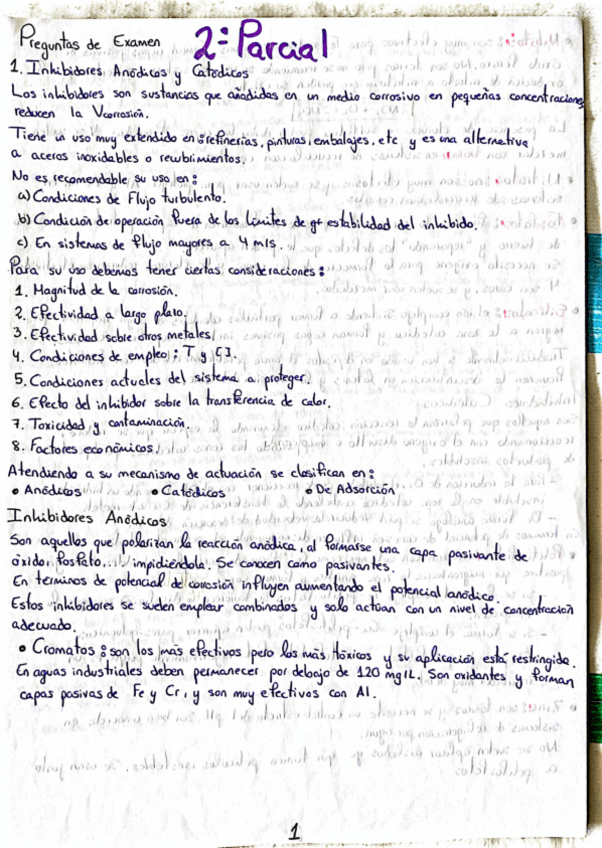 Preguntas de Examen 2º Parcial
1. Inhibidores Anódicos y Catódicos
Los inhibidores son sustancias que añadidas en un medio corrosivo en pequeñas concentraciones
reducen la Vcorrosión.
Tiene un uso muy extendido en: refinerías, pinturas, embalajes, etc y es una alternativa
a aceros inoxidables o recubrimientos.
No es recomendable su uso en:
a) Condiciones de Flujo turbulento.
b) Condición de operación fuera de los límites de estabilidad del inhibido.
c) En sistemas de flujo mayores a 4 m/s.
Para su uso debemos tener ciertas consideraciones:
1. Magnitud de la corrosión.
2. Efectividad a largo plazo.
3. Efectividad sobre otros metales.
4. Condiciones de empleo: T y
5. Condiciones actuales del sistema a proteger.
6. Efecto del inhibidor sobre la transferencia de calor.
7. Toxicidad y contaminación.
8. Factores económicos.
Atendiendo a su mecanismo de actuación se clasifican en:
• Anódicos • Catódicos • De Adsorción
Inhibidores Anódicos
Son aquellos que polarizan la reacción anódica, al formarse una capa pasivante de
óxido, fosfato... impidiéndola. Se conocen como pasivantes.
En terminos de potencial de corrosión influyen aumentando el potencial anódico.
Estos inhibidores se suelen emplear combinados y solo actúan con un nivel de concentración
adecuado.
• Cromatos: son los más efectivos pero los más tóxicos y su aplicación está restringida.
En aguas industriales deben permanecer por debajo de 120 mg/L. Son oxidantes y forman
capas pasivas de Fe y Cr, y son muy efectivos con Al.
1